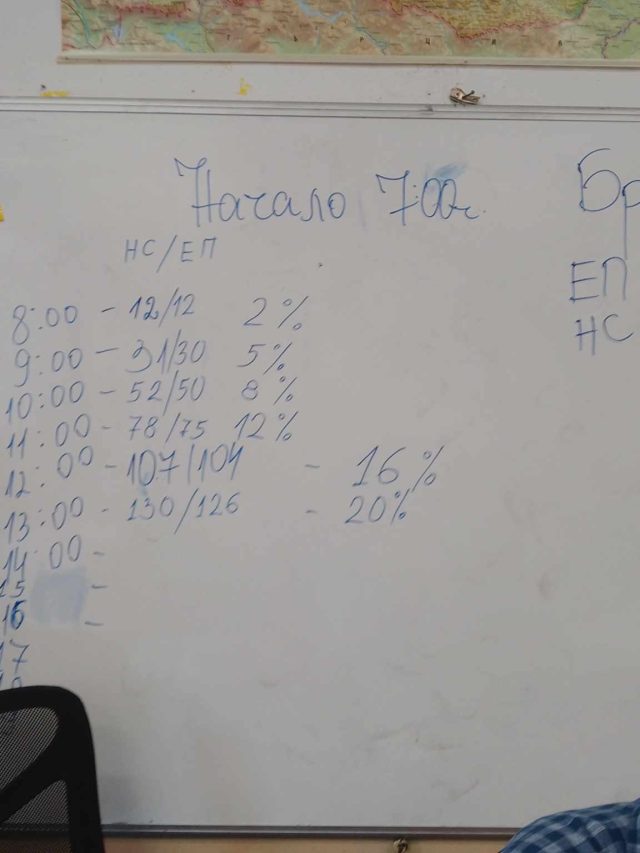 Начало 7:00ч.
НС/ЕП
8:00 - 12/12 2%
9:00 - 31/30 5%
10:00 - 52/50 8%
11:00 - 78/75 12%
12:00 - 107/104 - 16%
13:00 - 130/126 - 20%
14:00 -
15 -
16 -
17
Бр
ЕП
НС